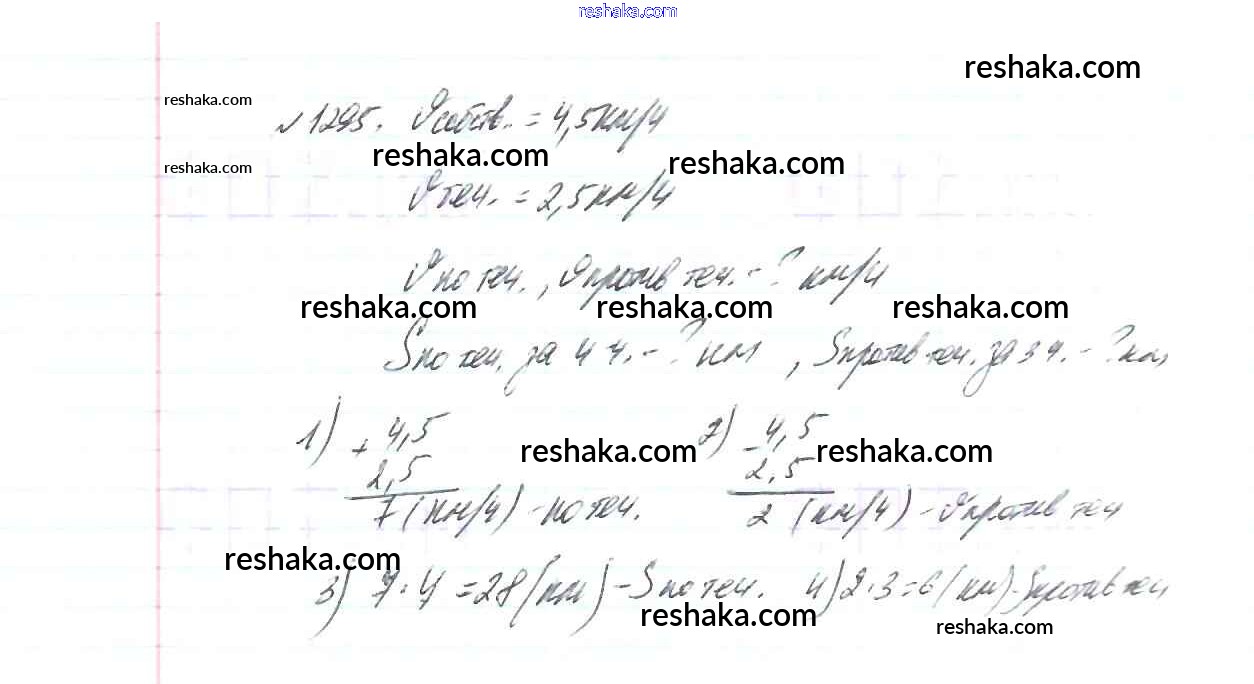 reshaka.com
reshaka.com
reshaka.com
№1295. Vсобств. = 4,5км/ч
reshaka.com
reshaka.com
reshaka.com
Vтеч. = 2,5км/ч
Vпо теч., Vпротив теч. - ? км/ч
reshaka.com
reshaka.com
reshaka.com
Sпо теч. за 4 ч. - ? км, Sпротив теч. за 3 ч. - ? км,
1) + 4,5 2) - 4,5
reshaka.com
reshaka.com
2,5 2,5
7 (км/ч) - по теч. 2 (км/ч) - Vпротив теч
reshaka.com
3) 7·4 = 28 (км) - Sпо теч. 4) 2·3 = 6 (км) - Sпротив теч
reshaka.com
reshaka.com